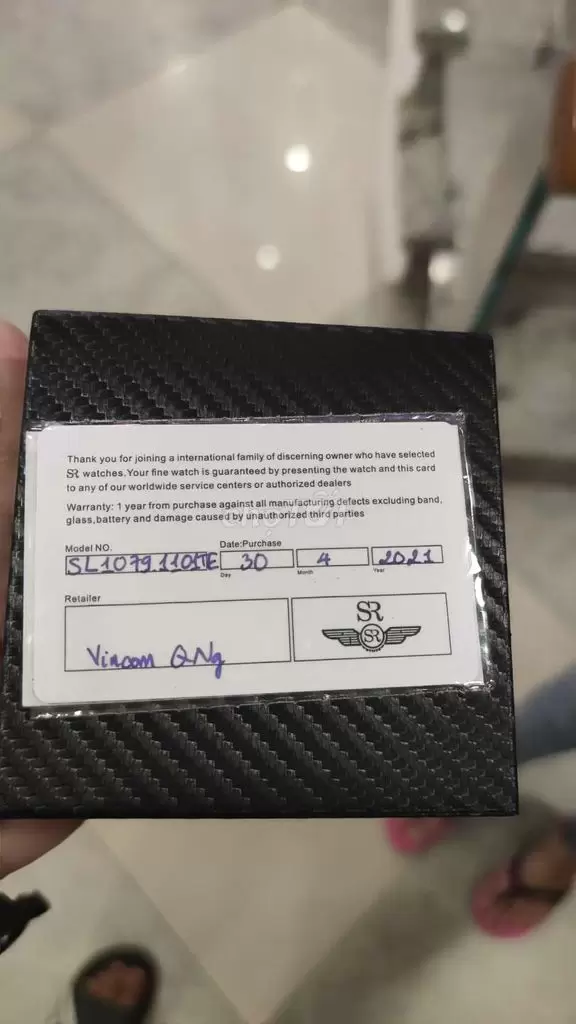 Thank you for joining a international family of discerning owner who have selected
SR watches.Your fine watch is guaranteed by presenting the watch and this card
to any of our worldwide service centers or authorized dealers
Warranty: 1 year from purchase against all manufacturing defects excluding band,
glass,battery and damage caused by unauthorized third parties
Model NO.
Date:Purchase
SL1079.1101TE 30 4 2021
Day Month Year
Retailer
Vincom QNg
SR
SR